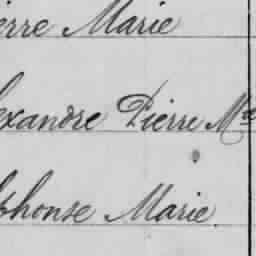 ierre Marie
exandre Pierre Mie
phonse Marie